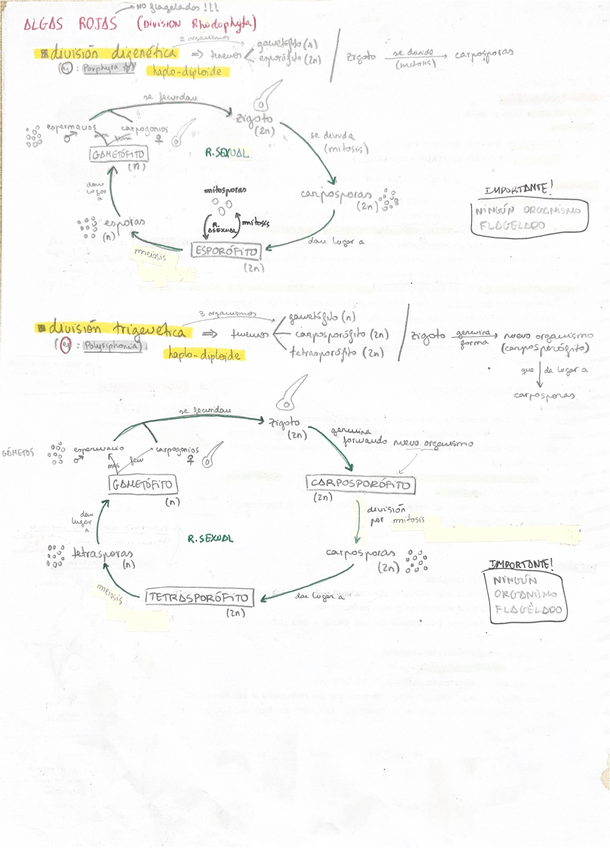 No flagelados!!!
ALGAS ROJAS (DIVISION Rhodophyta)
división digenética ⇒ tenemos gametofito (n)
2 organismos
esporófito (2n)
Zigoto se divide (mitosis) → carposporas
Ej: Porphyra
haplo-diploide
se fecundan
Zigoto
(2n)
espermacios ♂
carpogonios ♀
GAMETÓFITO
(n)
R. SEXUAL
se divide
(mitosis)
dan lugar a
mitosporas
carposporas
(2n)
IMPORTANTE!
NINGÚN ORGANISMO
FLAGELADO
esporas
(n)
R. ASEXUAL
mitosis
meiosis
ESPORÓFITO
(2n)
dan lugar a
3 organismos
división trigenética ⇒ tenemos
gametófito (n)
carposporófito (2n)
tetrasporófito (2n)
Zigoto germina forma → nuevo organismo
(carposporófito)
que da lugar a
carposporas
(ej: Polysiphonia)
haplo-diploide
se fecundan
Zigoto
(2n)
germina
formando nuevo organismo
GÁMETOS
espermacio ♂
carpogonios ♀
masc
fem
GAMETÓFITO
(n)
CARPOSPORÓFITO
(2n)
división
por mitosis
dan lugar a
R. SEXUAL
tetrasporas
(n)
carposporas
(2n)
IMPORTANTE!
NINGÚN
ORGANISMO
FLAGELADO
meiosis
TETRASPORÓFITO
(2n)
dan lugar a